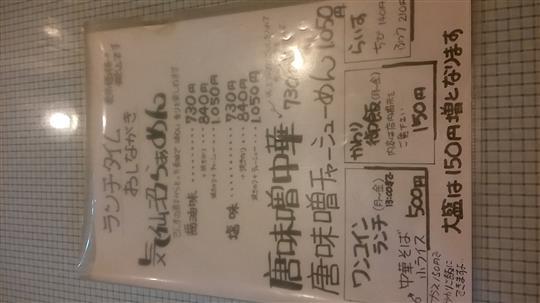 ランチタイム
おしながき
気仙沼らぁめん
醤油味 ・・・・・・・・・ 730円
840円
1,050円
塩味 ・・・・・・・・・ 730円
840円
1,050円
唐味噌中華 730円
唐味噌チャーシューめん 1,050円
ワンコイン
ランチ (月〜金)
13:00まで
中華そば
小ライス 500円
かわり
御飯 (月〜金)
内容は店内掲示を
ご覧下さい
150円
らいす
ちび 140円
ふつう 210円
プラス150円で
かわりご飯に
できますよ
大盛は150円増となります